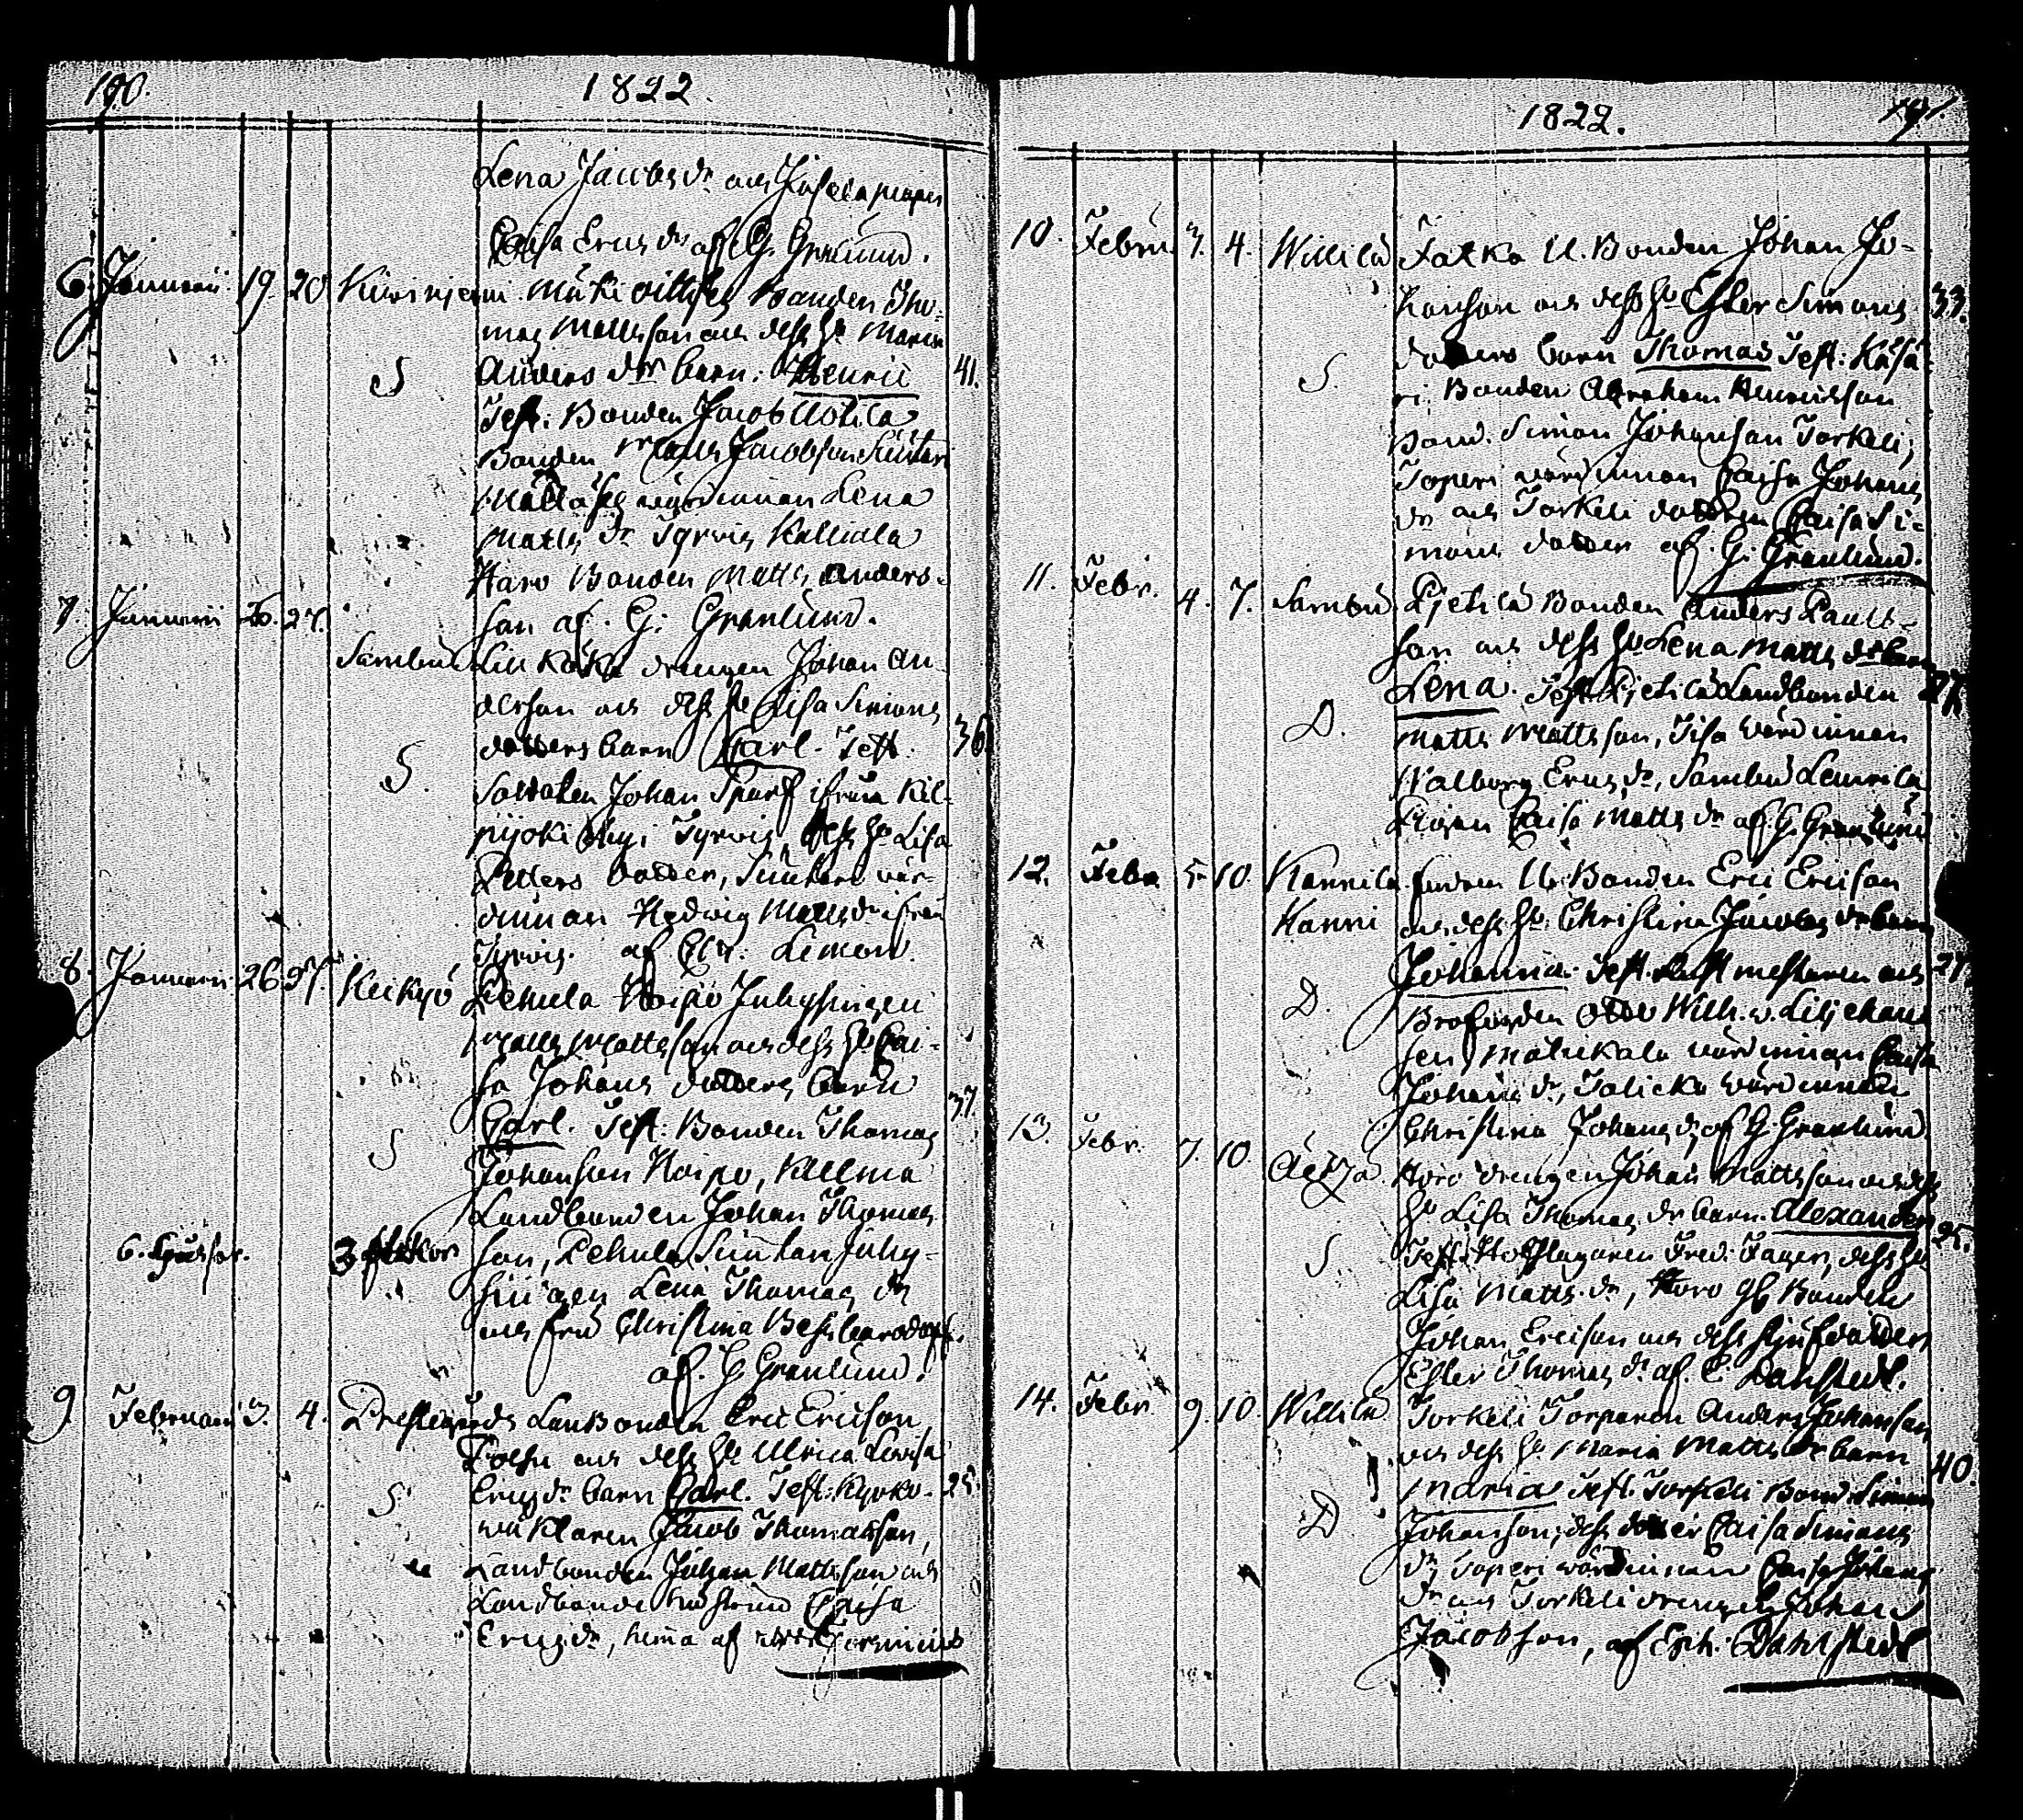 190.
1822.
Lena Jacobs dr och
Caisa Erics dr af G. Grenlund.
6. Januarii 19. 20 Kiurinjemi Mäki Bonden Tho-
mas Mattsson och dess hu Maria
S Anders dr barn: Henric 41.
Test: Bonden Jacob Uotila
Bonden Matts Jacobsson Suutari
wärdinnan Lena
Matts dr Tyrvis Kalliala
Haro Bonden Matts Anders-
7. Januarii 26. 27. son af G: Grenlund.
Sambu Lill Kåks drengen Johan An-
dersson och dess hu Caisa Simons
dotters barn Carl. Test: 36
S. Soldaten Johan Sparf ifrån Kil-
pijoki by i Tyrvis, dess hu Lisa
Petters dotter, Suutari vär-
dinnan Hedvig Matts dr ifrån
Tyrvis. af Simon.
8. Januarii 26 27. Keikyö Pehula Koipo Inhysingen
Matts Mattsson och dess hu Cai-
sa Johans dotters barn
Carl. Test: Bonden Thomas 37.
S Johansson Koipo, Kallma
Landbonden Johan Thomas-
6. Gossar. 3 flickor son, Pehula Suutari Inhy-
singen Lena Thomas dr
och fru Christina
af. G Grenlund.
9. Februarii 3. 4. Prestegårds Lanbonden Eric Ericson
och dess hu Ulrica Lovisa
S. Erics dr barn Carl. Test: Kyrko- 25.
wäktaren Jacob Thomasson,
Landbonden Johan Mattsson och
Landbonde hustrun Caisa
Erics dr, hema af
1822. 191.
10. Febru. 3. 4. Willilä Falka U. Bonden Johan Jo-
hansson och dess hu Ester Simons 33.
S. dotters barn Thomas Test: Käsä
ri Bonden Abraham Henricsson
Bond. Simon Johansson Torkeli,
Toperi wärdinnan Caisa Johans
dr och Torkeli dottren Caisa Si-
mons dotter af. G. Grenlund.
11. Febr. 4. 7. Sambu Pietilä Bonden Anders Pauls-
son och dess hu Lena Matts dr barn
Lena. Test. Pietilä Landbonden 27.
D. Matts Mattsson, Iisa wärdinnan
Walborg Erics dr, Sambu Laurila
Pigan Caisa Matts dr af. G. Grenlund
12. Febr. 5. 10. Kannila U. Bonden Eric Ericson
Kanni och dess hu Christina Jacobs dr barn
Johanna. Test. och 27.
D. Wilh. v. Liljehand
wärdinnan Caisa
Johans dr, wärdinnan
Christina Johans dr af G. Grenlund
13. Febr. 7. 10. Äetzä. Horo drengen Johan Mattsson och dess
hu Lisa Thomas dr barn. Alexander 25.
S. Test: Hofslagaren Fred: Fager, dess hu
Lisa Matts dr, Horo gb Bonden
Johan Ericson och dess stjufdotter
Ester Thomas dr af. E. Dahlstedt.
14. Febr. 9. 10. Willilä Torkeli Torparen Anders Johansson
och dess hu Maria Matts dr barn
Maria Test. Torkeli Bond. Simon 40.
D. Johansson, dess dotter Caisa Simons
dr, Toperi wärdinnan Caisa Johans
dr och Torkeli drengen Johan
Jacobsson, af Erh. Dahlstedt